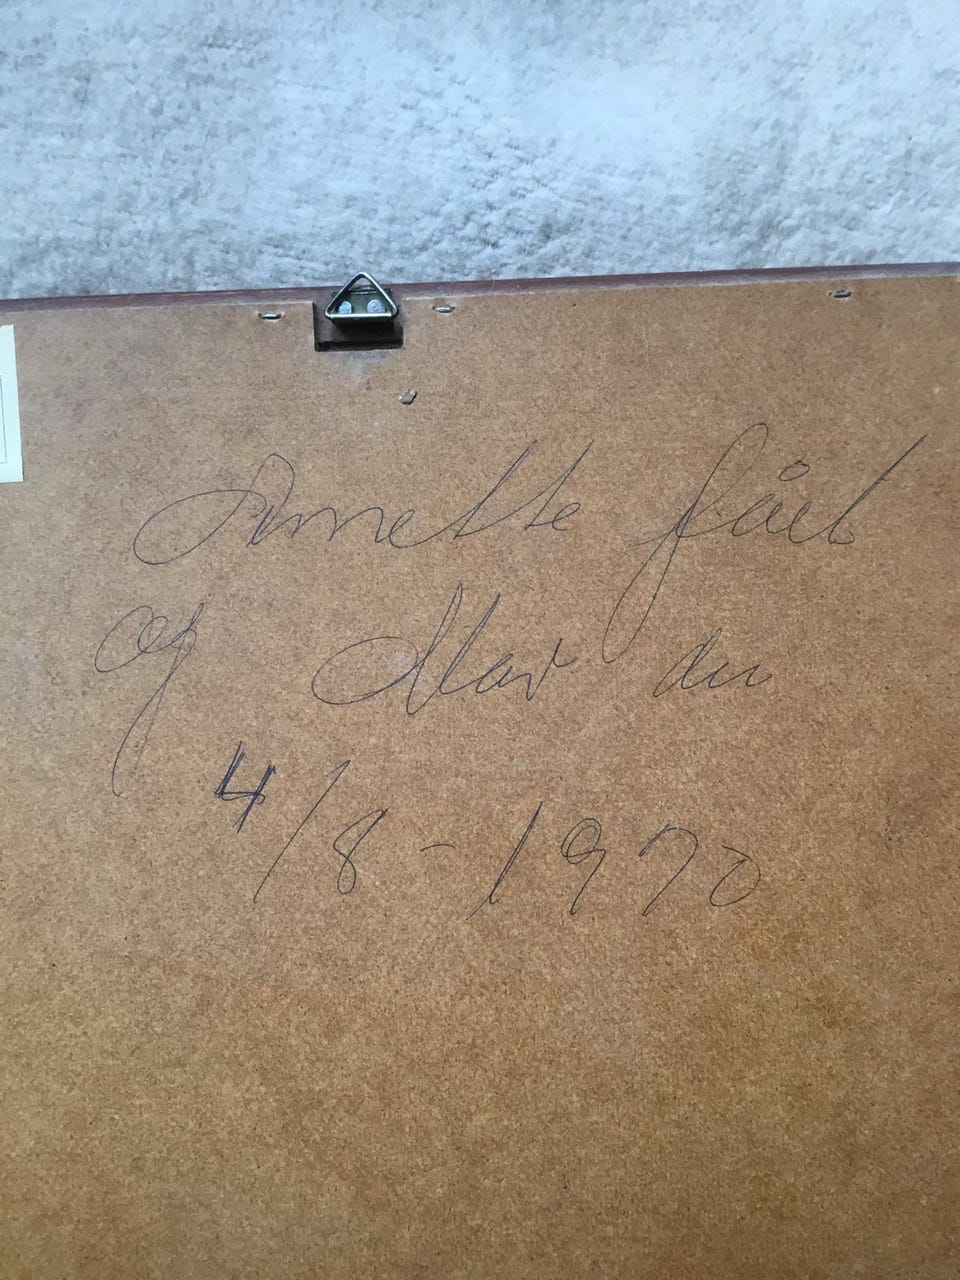 Annette fået
af Mor den
4/8 - 1970